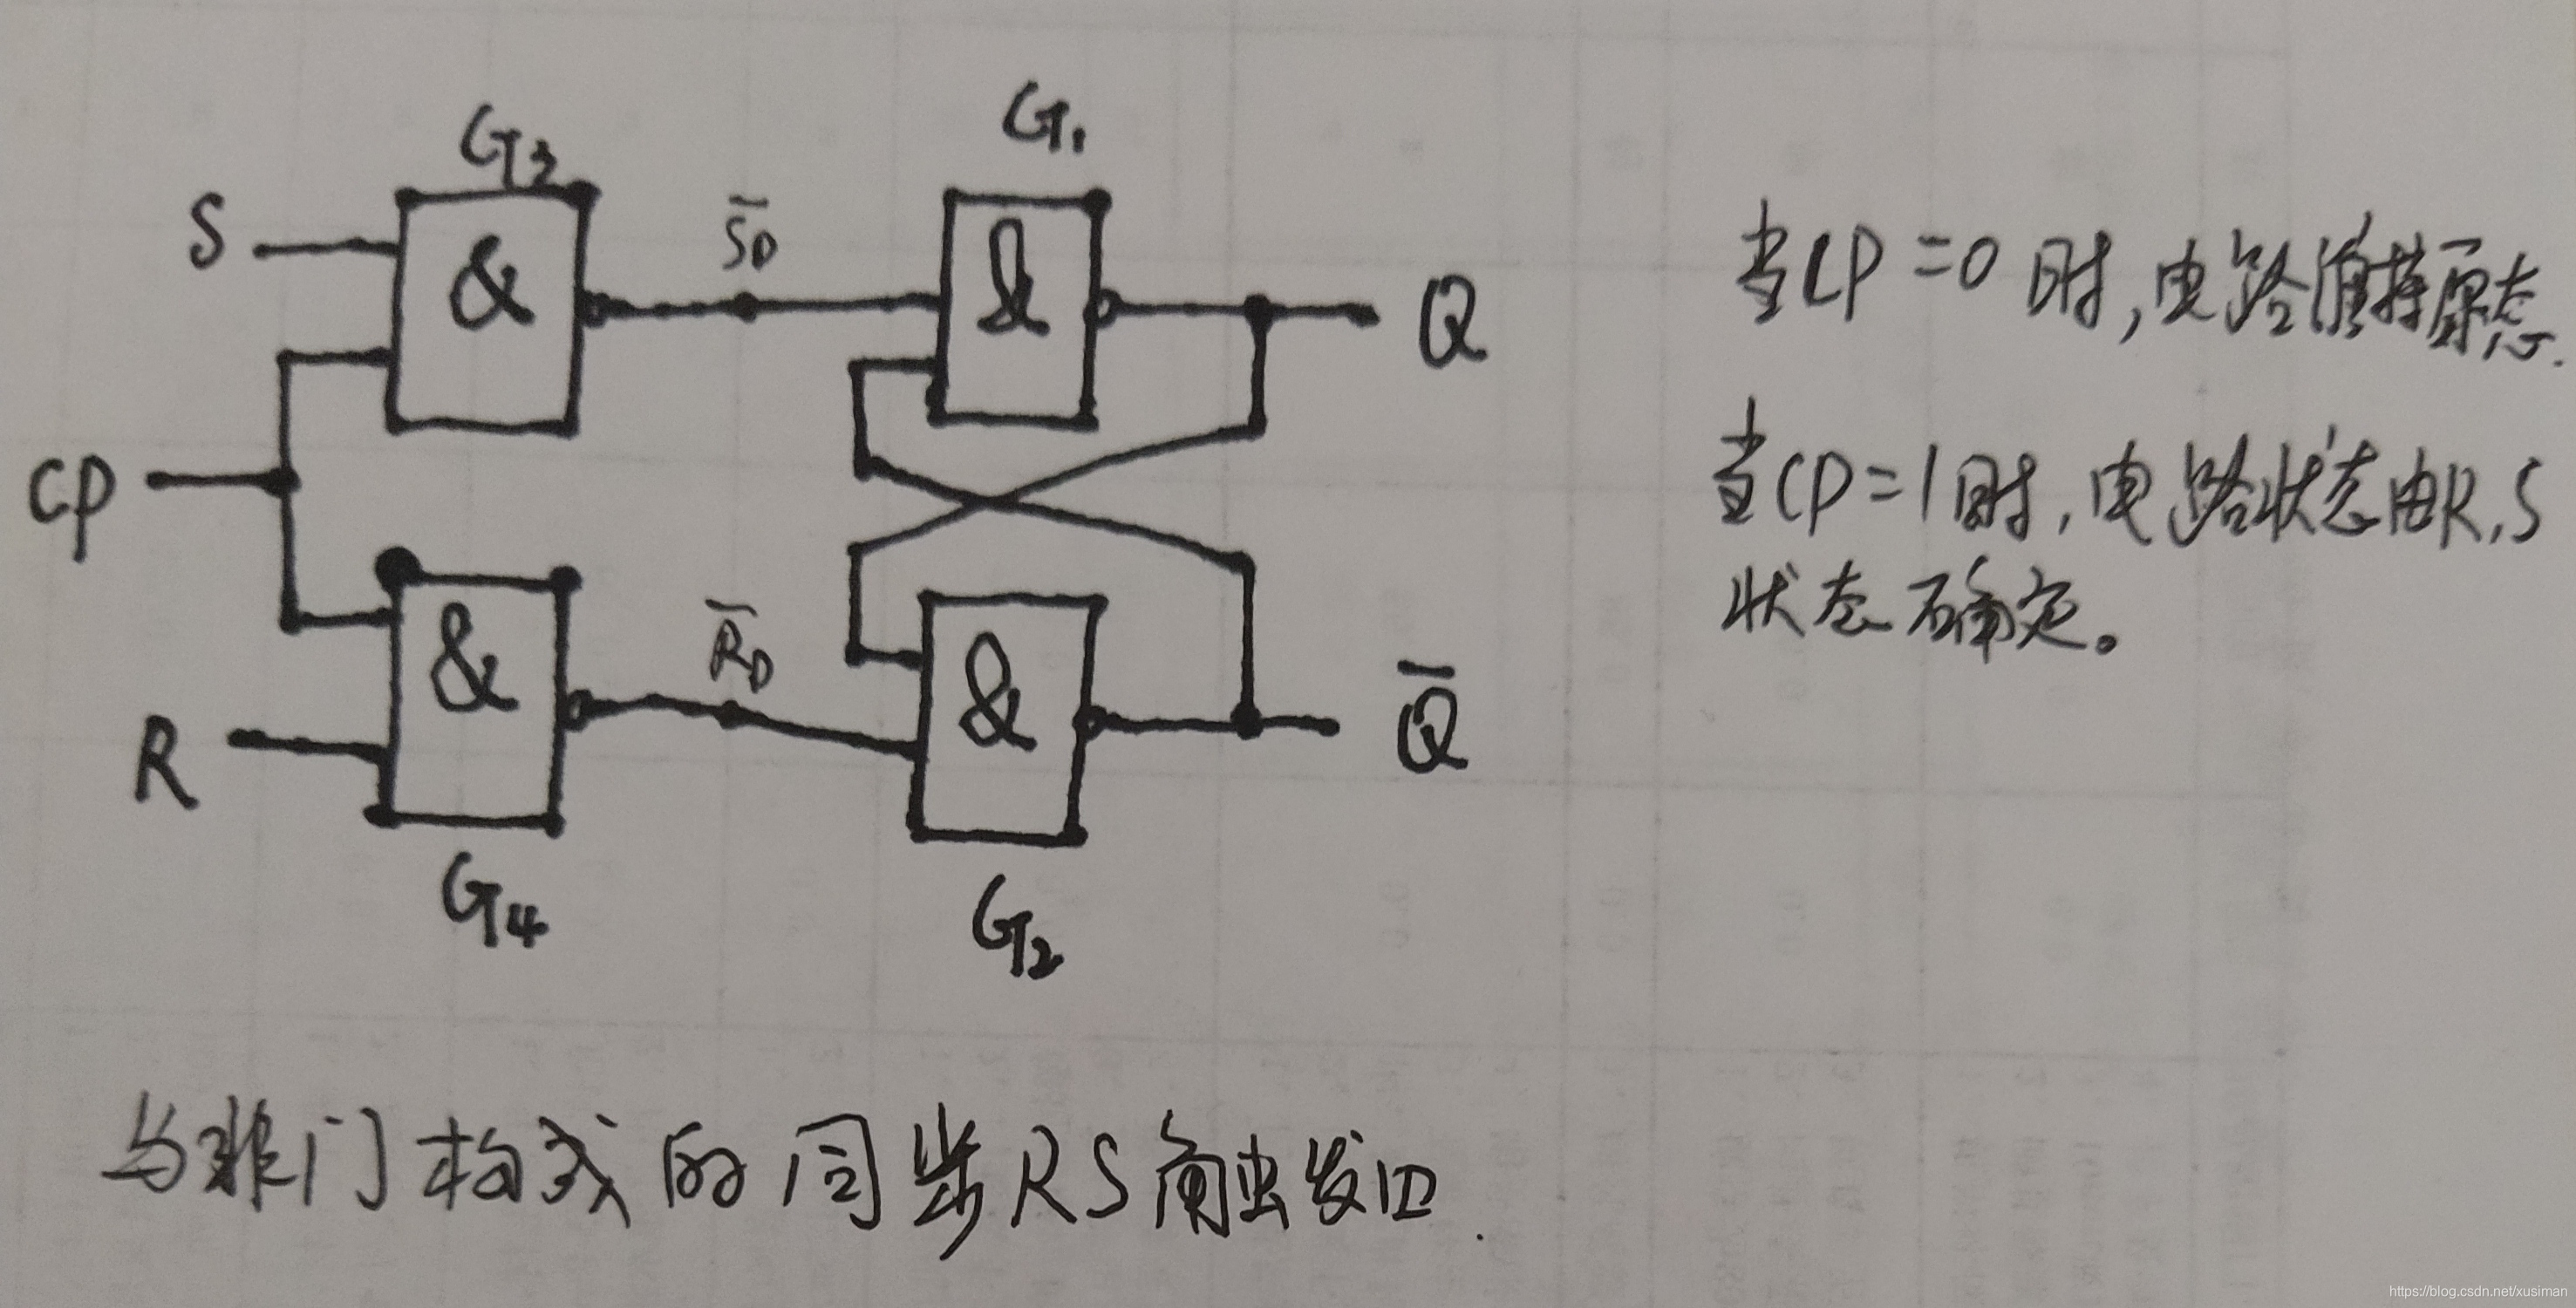 G3
G1
S
&
S̅D
&
Q
CP
&
R̅D
&
R
Q̅
G4
G2
当CP=0时,电路维持原态.
当CP=1时,电路状态由R,S
状态确定。
与非门构成的同步RS触发四.
https://blog.csdn.net/xusiman